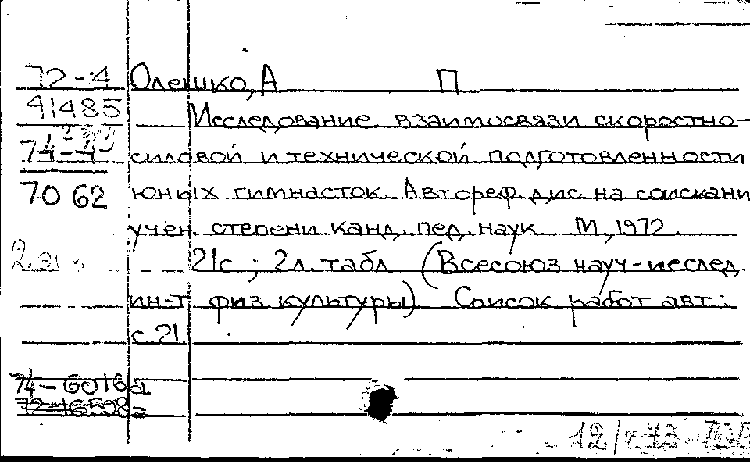 72-4 Олешко, А П
41485 Исследование взаимосвязи скоростно-
74-4 силовой и технической подготовленности
70 62 юных гимнасток. Автореф. дис. на соискани
учен. степени канд. пед. наук М, 1972.
21с; 2л. табл (Всесоюз науч-исслед.
ин-т физ культуры) Список работ авт:
с. 21
74-6016а